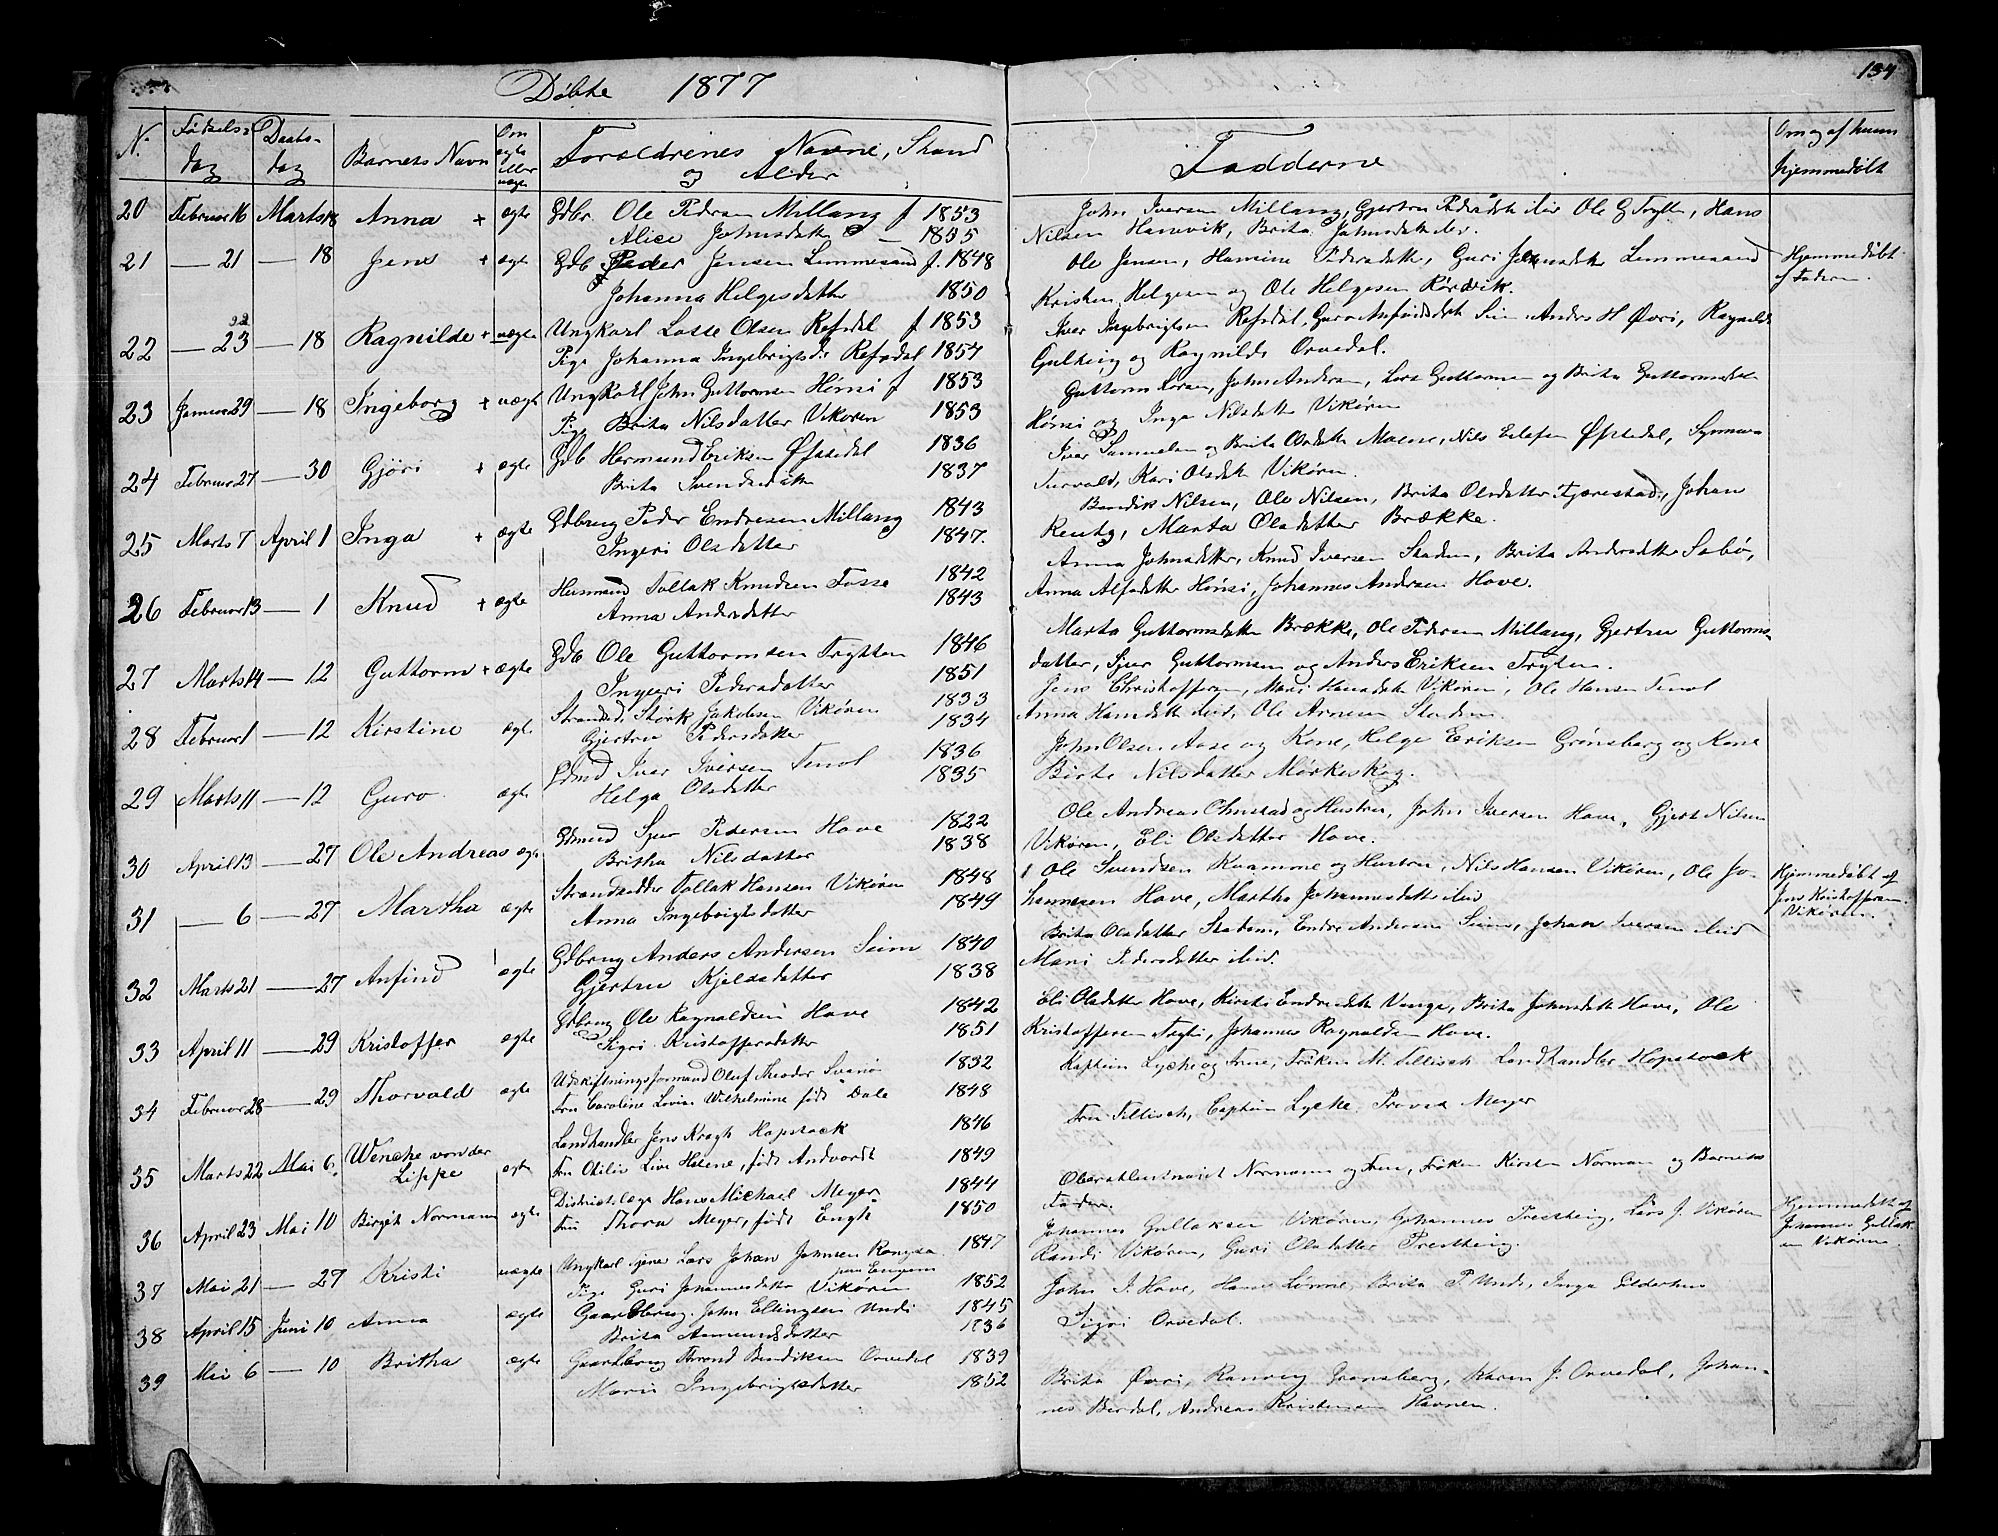 Döbte 1877
134
No.
Fødsels-
dag
Daabs-
dag
Barnets Navn
Om
ægte
eller
uægte
Forældrenes Navne, Stand
og Alder
Fadderne
Om og af hvem
hjemmedøbt
20 Februar 16 Marts 18 Anna + ægte Gdbr Ole Pedersen Millang f 1853
Alice Johnsdatter — 1855
John Iversen Millang, Gjertru Pedersdtr ibid Ole G Trytten, Hans
Nilsen Hamvik, Brita Johnsdatter ibd.
21 — 21 — 18 Jens + ægte Gdb Peder Jensen Lemmesand f. 1848
Johanna Helgesdatter 1850
Ole Jensen, Hansine Pedersdatter, Guri Jensdatter Lemmesand
Kristen Helgesen og Ole Helgesen Rørvik.
Hjemmedøbt
af Faderen
22 — 23 — 18 Ragnilde + uægte Ungkarl Lasse Olsen Refsdal f 1853
Pige Johanna Ingebrigtsdr Refsdal 1854
Iver Ingebrigtsen Refsdal, Guro Anfindsdtr Seim, Anders H Øvri, Ragnilde
og Ragnilde Orvedal.
23 Januar 29 — 18 Ingeborg + uægte Ungkarl John Guttormsen Hønsi f 1853
Pige Brita Nilsdatter Vikøren 1853
Guttorm Larsen, John Andersen, Lars Guttormsen og Brita Guttormsdtr
Hønsi og Inga Nilsdatter Vikøren
24 Februar 27 — 30 Gjöri + ægte Gdb Hermund Eriksen Øfstedal 1836
Brita Svendsdatter 1837
Iver Samuelsen og Brita Olsdatter Moene, Nils Eilefsen Øfstedal, Synneva
Turvold, Kari Olsdtr Vikøren.
25 Marts 7 April 1 Inga + ægte Gdbrug Peder Endresen Millang 1843
Ingeri Olsdatter 1847.
Bendik Nilsen, Ole Nilsen, Brita Olsdatter Fjærestad, Johan
Marta Olsdatter Brække.
26 Februar 13 — 1 Knud + ægte Husmand Tollak Knudsen Fosse 1842
Anna Andersdatter 1843
Anna Johnsdatter, Knud Iversen Stadem, Brita Andersdatter Søbø,
Anna Alfsdatter Hønsi, Johannes Andersen Hove.
27 Marts 14 — 12 Guttorm + ægte Gdb Ole Guttormsen Trytten 1846
Ingeri Pedersdatter 1851
Marta Guttormsdatter Brække, Ole Pedersen Millang, Gjertru Guttorms-
datter, Sjur Guttormsen og Anders Eriksen Tryten.
28 Februar 1 — 12 Kirstine ægte Strandsid. Størk Jakobsen Vikøren 1833
Gjertru Pedersdatter 1834
Jens Christoffersen, Mari Hansdtr Vikøren, Ole Hansen Tenol
Anna Hansdtr ibid, Ole Arnesen Stadem.
29 Marts 11 — 12 Guro ægte Gdmd Iver Iversen Tenol 1836
Helga Olsdatter 1835
John Olsen Aase og Kone, Helge Eriksen Grønsberg og Kone
Birte Nilsdatter Mørkeskog.
30 April 13 — 27 Ole Andreas ægte Gdmand Sjur Pedersen Hove 1822
Britha Nilsdatter 1838
Ole Andreas Ohnstad og Hustru, John Iversen Hove, Gjert Nilsen
Vikøren, Eli Olsdatter Hove.
31 — 6 — 27 Martha ægte Strandsidder Tollak Hansen Vikøren 1848
Anna Ingebrigtsdatter 1849
Ole Svendsen Kvamme og Hustru, Nils Hansen Vikøren, Ole Jo-
hannesen Hove, Martha Johannesdatter ibid
Hjemmedøbt af
Jens Kristoffersen
Vikøren.
32 Marts 21 — 27 Anfind ægte Gdbrug Anders Andersen Seim 1840
Gjertru Kjeldsdatter 1838
Brita Olsdatter Stadem, Endre Andersen Seim, Johan Iversen ibid
Mari Pedersdatter ibid.
33 April 11 — 29 Kristoffer ægte Gdbrug Ole Ragnaldsen Hove 1842
Sigri Kristoffersdatter 1851
Eli Olsdatter Hove, Kirsti Endresdtr Vange, Brita Johnsdtr Hove, Ole
Kristoffersen Johannes Ragnaldsen Hove.
34 Februar 28 — 29 Thorvald ægte Udskiftningsformand Oluf Theodor Svanø 1832
Fru Caroline Lovise Wilhelmine født Dale 1848
Kaptein Lyche og Frue, Frøken M. Tillisch Landhandler Hopstock
Fru Tillisch, Captein Lyche, Provst Meyer
35 Marts 22 Mai 6. Wencke von der
Lippe ægte Landhandler Jens Kragh Hopstock 1846
Fru Otilie Live Helene, født Andvordt 1849
36 April 23 Mai 10 Birgit Normann ægte Districtslæge Hans Michael Meyer 1844
Fru Thora Meyer, født Engh 1850
Oberstleutnant Normann og Frue, Frøken Kirsten Norman og Barnets
Fader.
37 Mai 21 — 27 Kristi uægte Ungkarl tjener Lars Johan Johnsen 1847
Pige Guri Johannesdatter Vikøren 1852
Johannes Gullaksen Vikøren, Johannes Prestheig, Lars J. Vikøren
Randi Vikøren, Guri Olsdatter Prestheig.
Hjemmedøbt af
Johannes Gullak-
sen Vikøren.
38 April 15 Juni 10 Anna ægte Gaardbrug. John Ellingsen Undi 1845
Brita Aamundsdatter 1836
John I. Hove, Brita P. Undi, Inga
Sigri Orvedal.
39 Mai 6 — 10 Britha ægte Gaardbrug Thrond Bendiksen Orvedal 1839
Marie Ingebrigtsdatter 1852
Brita Øvri, Ranveig Grønsberg, Karen J. Orvedal, Johan-
nes Berdal, Andreas Kristensen Havnen.